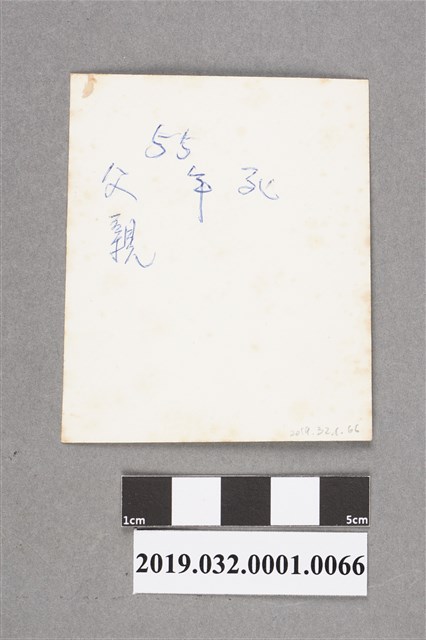 55
父 年 死
親
2019.32.1.66
1cm 5cm
2019.032.0001.0066